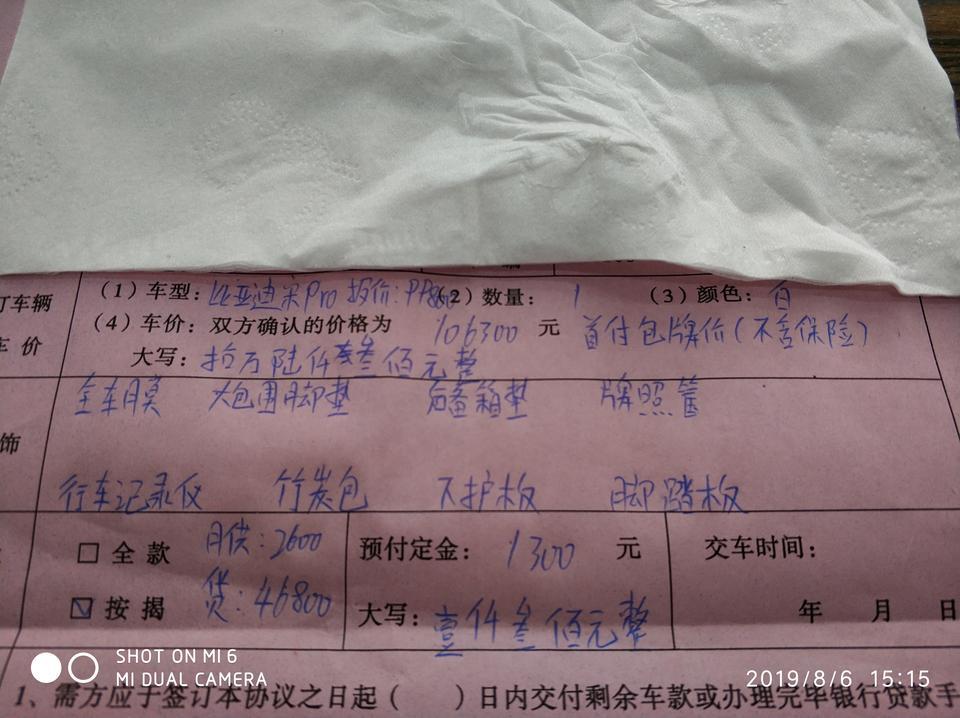 订车辆 (1)车型：比亚迪宋Pro (2)数量： 1 (3)颜色：白
车 价 (4)车价：双方确认的价格为 106300 元 首付包牌价(不含保险)
大写：拾万陆仟叁佰元整
全车膜 大包围脚垫 后备箱垫 牌照
饰
行车记录仪 竹炭包 下护板 脚踏板
□ 全 款 月供：2600 预付定金： 1300 元 交车时间：
☑ 按 揭 贷：46800 大写：壹仟叁佰元整 年 月 日
1、需方应于签订本协议之日起( )日内交付剩余车款或办理完毕银行贷款手
SHOT ON MI 6
MI DUAL CAMERA
2019/8/6 15:15